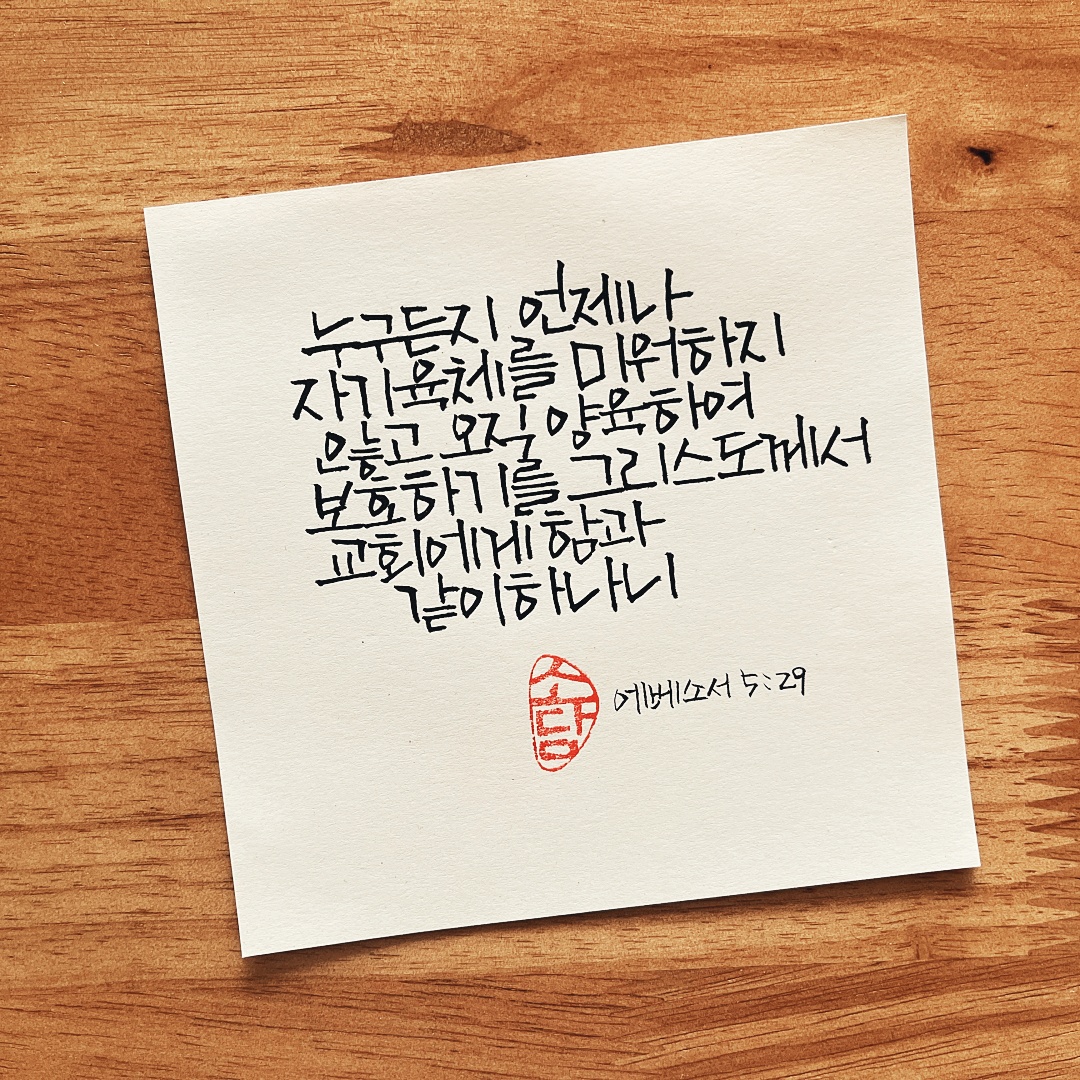 누구든지 언제나
자기육체를 미워하지
않고 오직 양육하여
보호하기를 그리스도께서
교회에게 함과
같이하나니
소담
에베소서 5:29